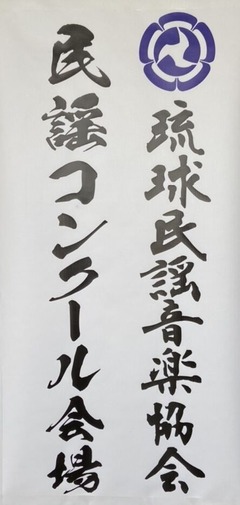 琉球民謡音楽協会
民謡コンクール会場